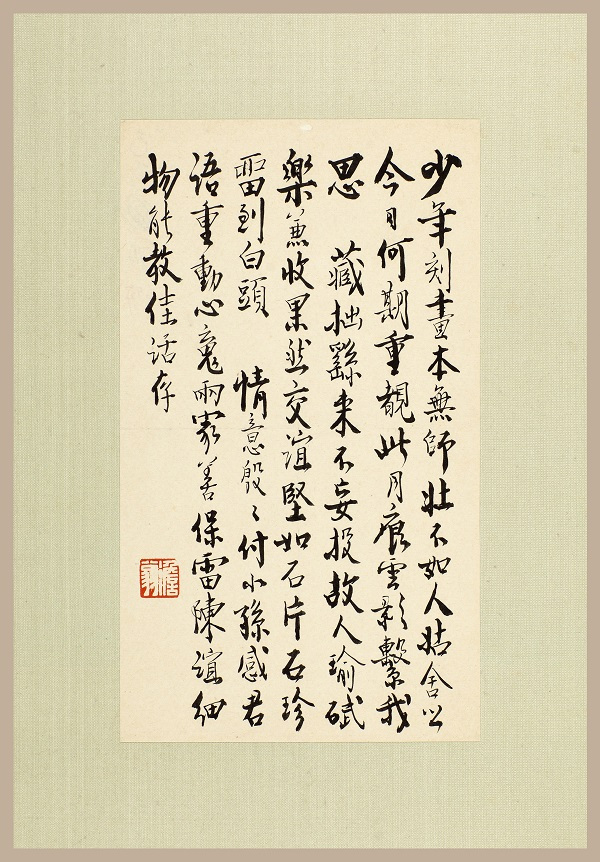 少年刻畫本無師壯不如人姑舍之
今日何期重覩此月痕雲影繫我
思　藏拙繇來不妄投故人瑜碔
樂兼收果然交誼堅如石片石珍
留到白頭　情意殷〻付小孫感君
語重動心魂兩家善保雷陳誼細
物能教佳話存